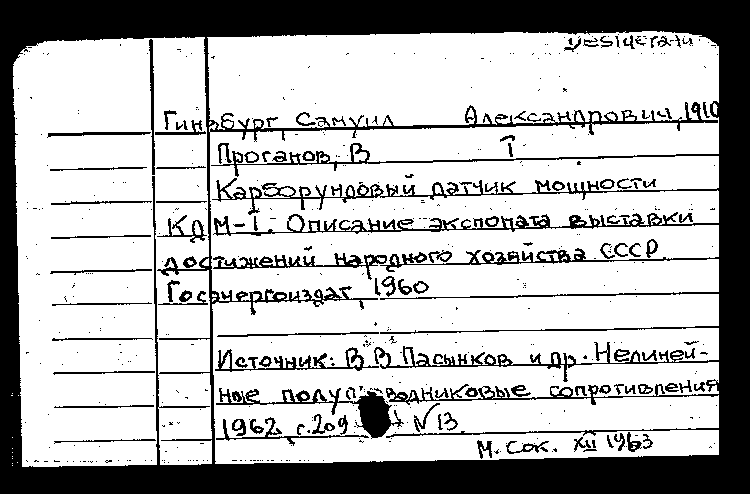 Desiderata
Гинзбург, Самуил Александрович, 1910
Проганов, В I
Карборундовый датчик мощности
КДМ-I. Описание экспоната выставки
достижений народного хозяйства СССР
Госэнергоиздат, 1960
Источник: В.В. Пасынков и др. Нелиней-
ные полупроводниковые сопротивления
1962, с. 209 N 13
М. Сок. XII 1963